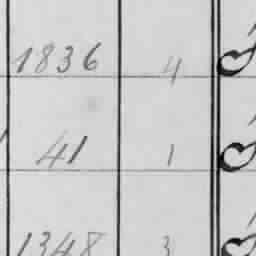 1836 4
41 1
1348 3